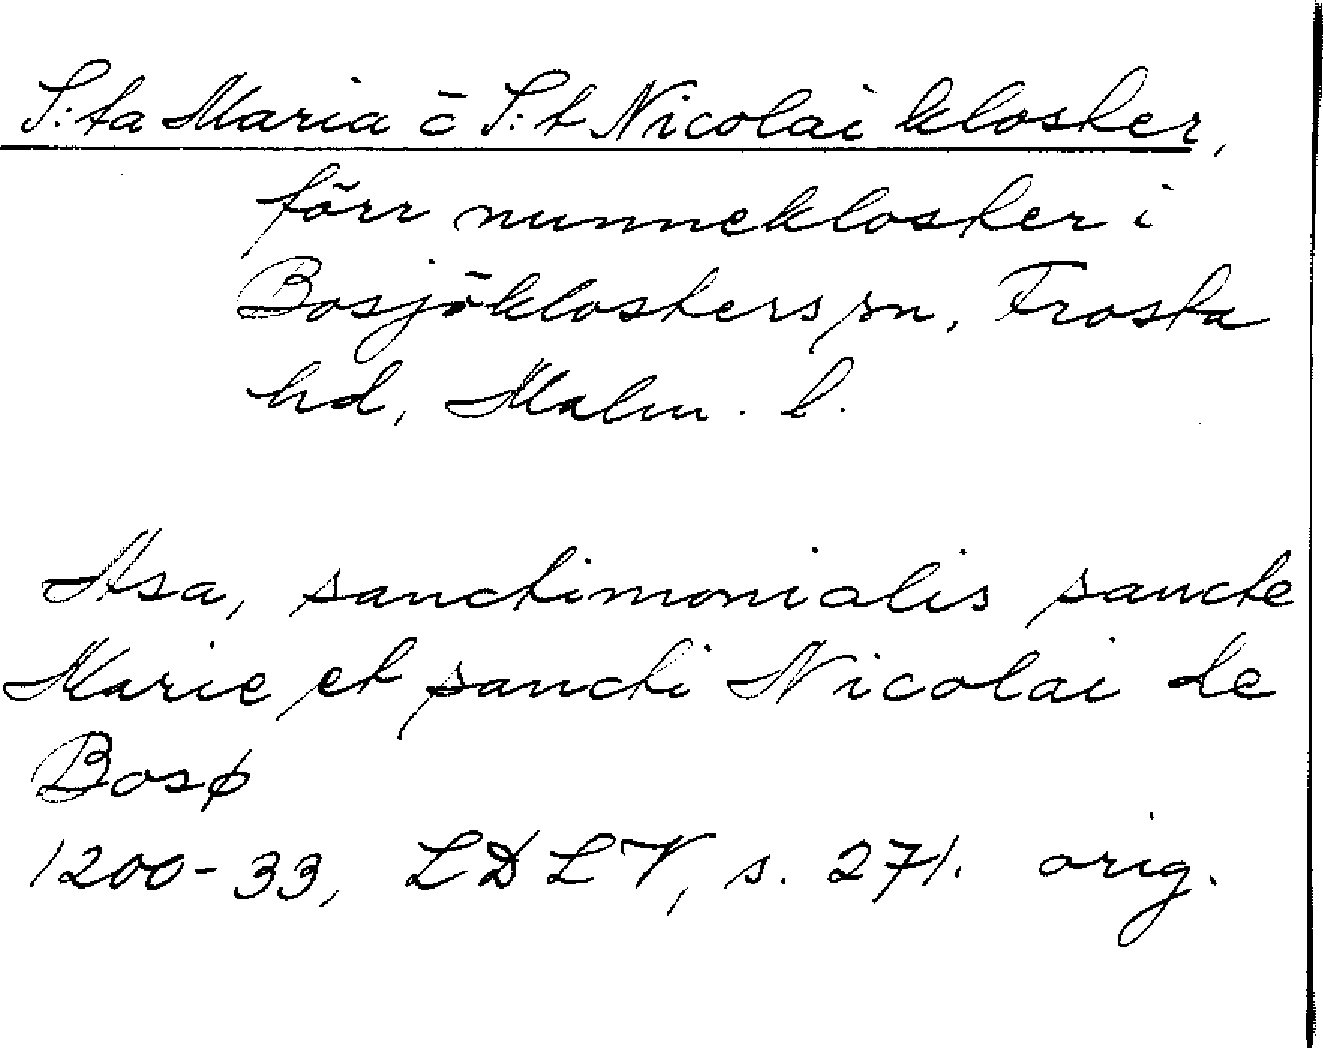 S:ta Maria o S:t Nicolai kloster,
förr nunnekloster i
Bosjöklosters sn, Frosta
hd, Malm. l.
Asa, sanctimonialis sancte
Marie et sancti Nicolai de
Bosø
1200-33, LDLV, s. 271. orig.